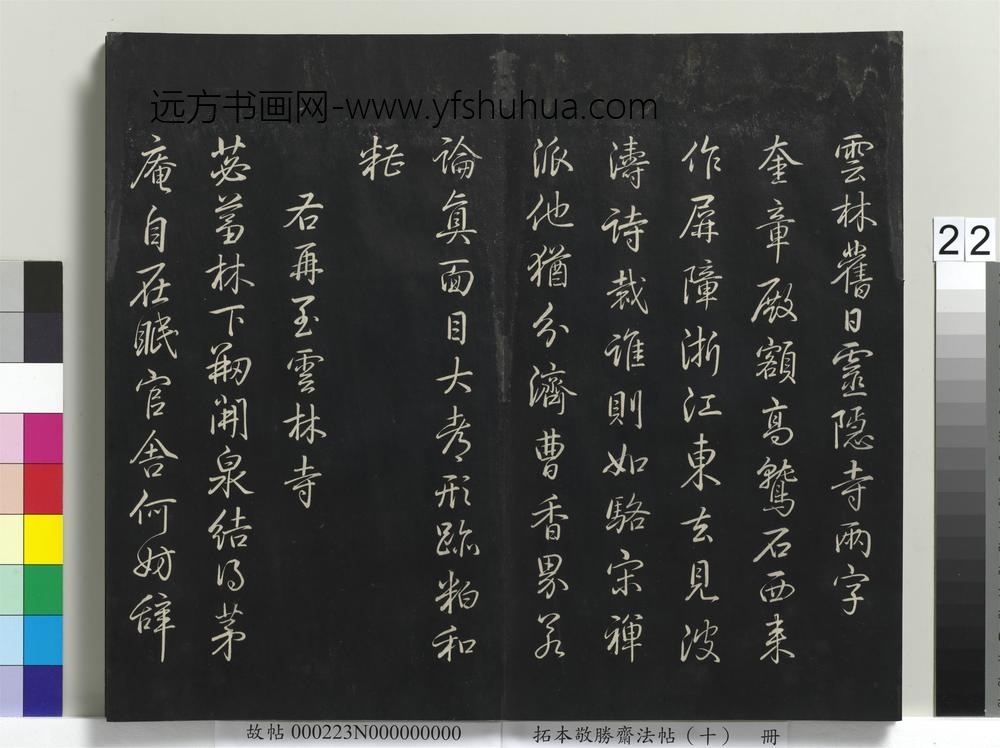 远方书画网-www.yfshuhua.com
雲林舊日靈隱寺兩字
奎章殿額高鷲石西来
作屏障浙江東去見波
濤詩裁誰則如駱宋禪
派他猶分濟曹香界若
論真面目大都形跡粕和
糟
右再至雲林寺
苾蒭林下剏開泉結得茅
庵自在眠官舍何妨辭
22
故帖 000223N000000000
拓本敬勝齋法帖(十) 冊